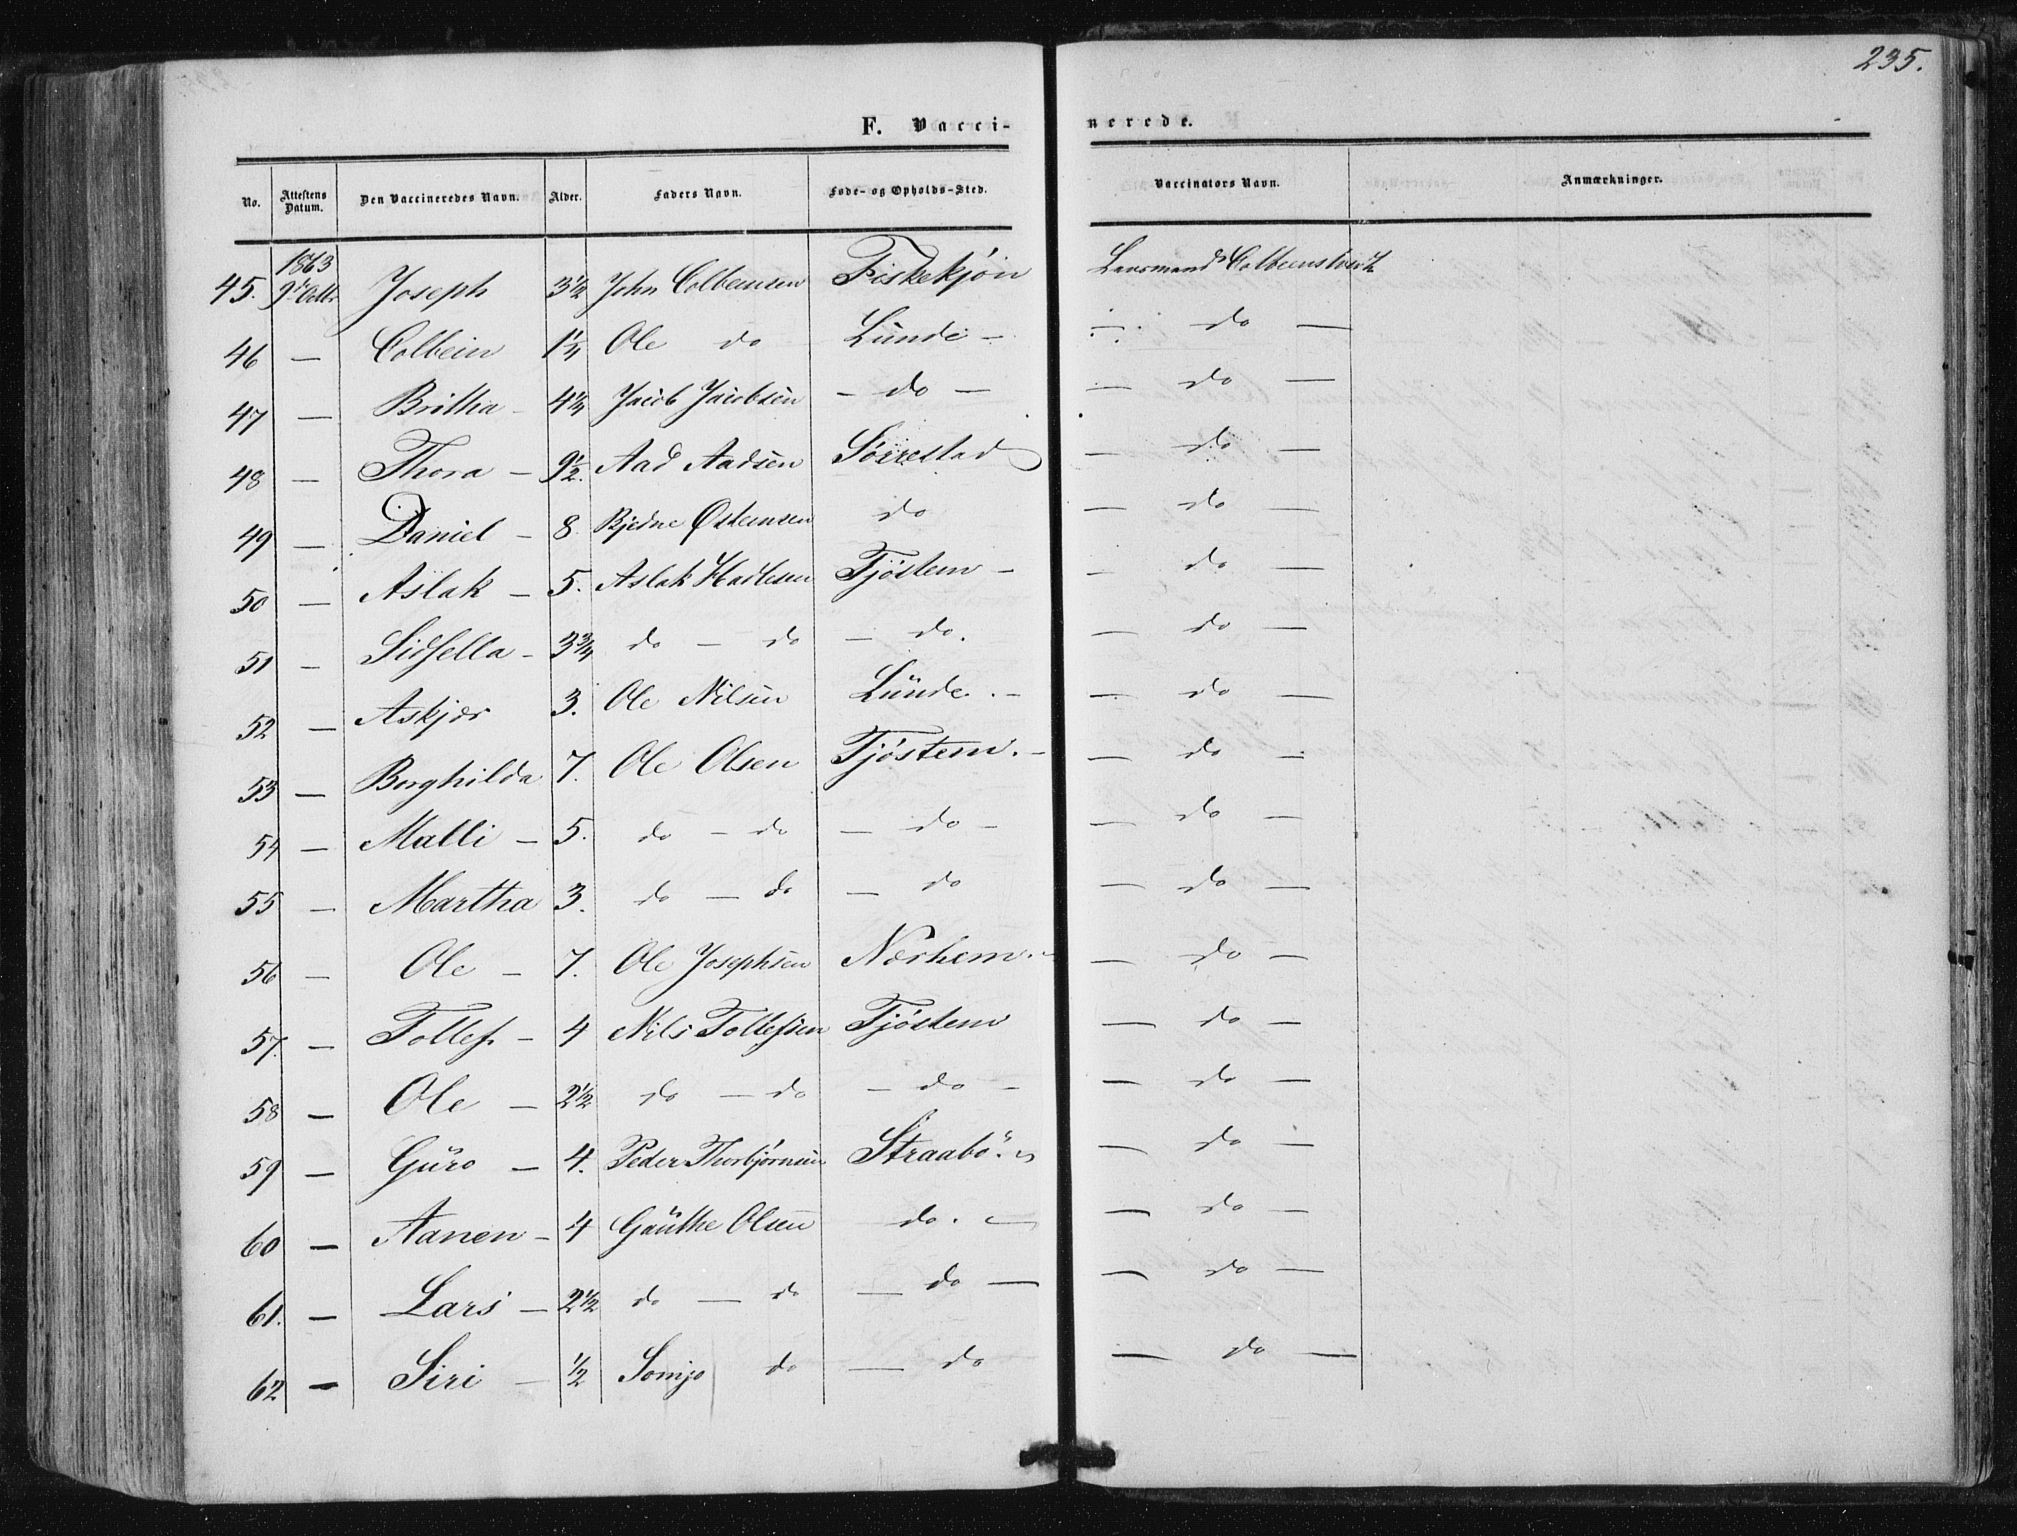 235.
F. Vacci- nerede.
No. Attestens Datum. Den Vaccineredes Navn. Alder. Faders Navn. Føde- og Opholds-Sted. Vaccinators Navn. Anmærkninger.
1863
45. 9de Octbr Joseph 3½ John Colbensen Fiskekjøn Lensmand
46 — Colbein 1¼ Ole do Lunde — — do —
47 — Britha — 4¼ Jacob Jacobsen — do — — do —
48 — Thora — 9½. Aad Aadsen Sirestad — do —
49 — Daniel — 8. Østensen do — do —
50 — Aslak — 5. Aslak Tjöstem — — do —
51 — Sidsella — 3¾ do — do — do. — do —
52 — Askjær 3. Ole Nilsen Lunde. — — do —
53 — Borghilda 7. Ole Olsen Tjöstem. — — do —
54 — Malli — 5. do — do — do — — do —
55 — Martha 3. do — do — do — do —
56 — Ole — 7. Ole Josephsen Nærhem. — — do —
57. — Tollef. — 4 Nils Tollefsen Tjöstem — do —
58 — Ole — 2½ do — do — do — — do —
59 — Guro — 4. Peder Thorbjörnsen Straabö. — do —
60 — Aanen — 4 Gauthe Olsen do. — — do —
61. — Lars — 2½ do — do — do — — do —
62 — Siri — ½ do — do — do —